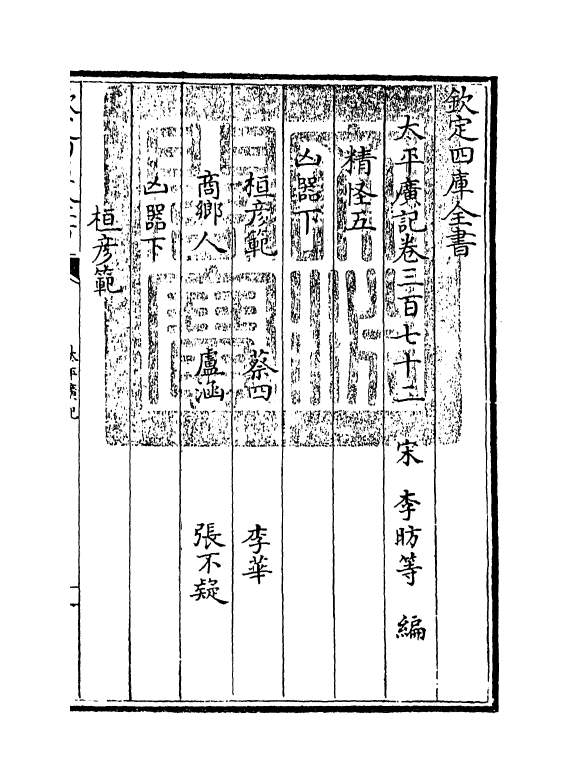 欽定四庫全書
太平廣記卷三百七十二 宋 李昉等 編
精怪五
凶器下
桓彥範 蔡四 李華
商鄉人 盧涵 張不疑
凶器下
桓彥範
太平廣記